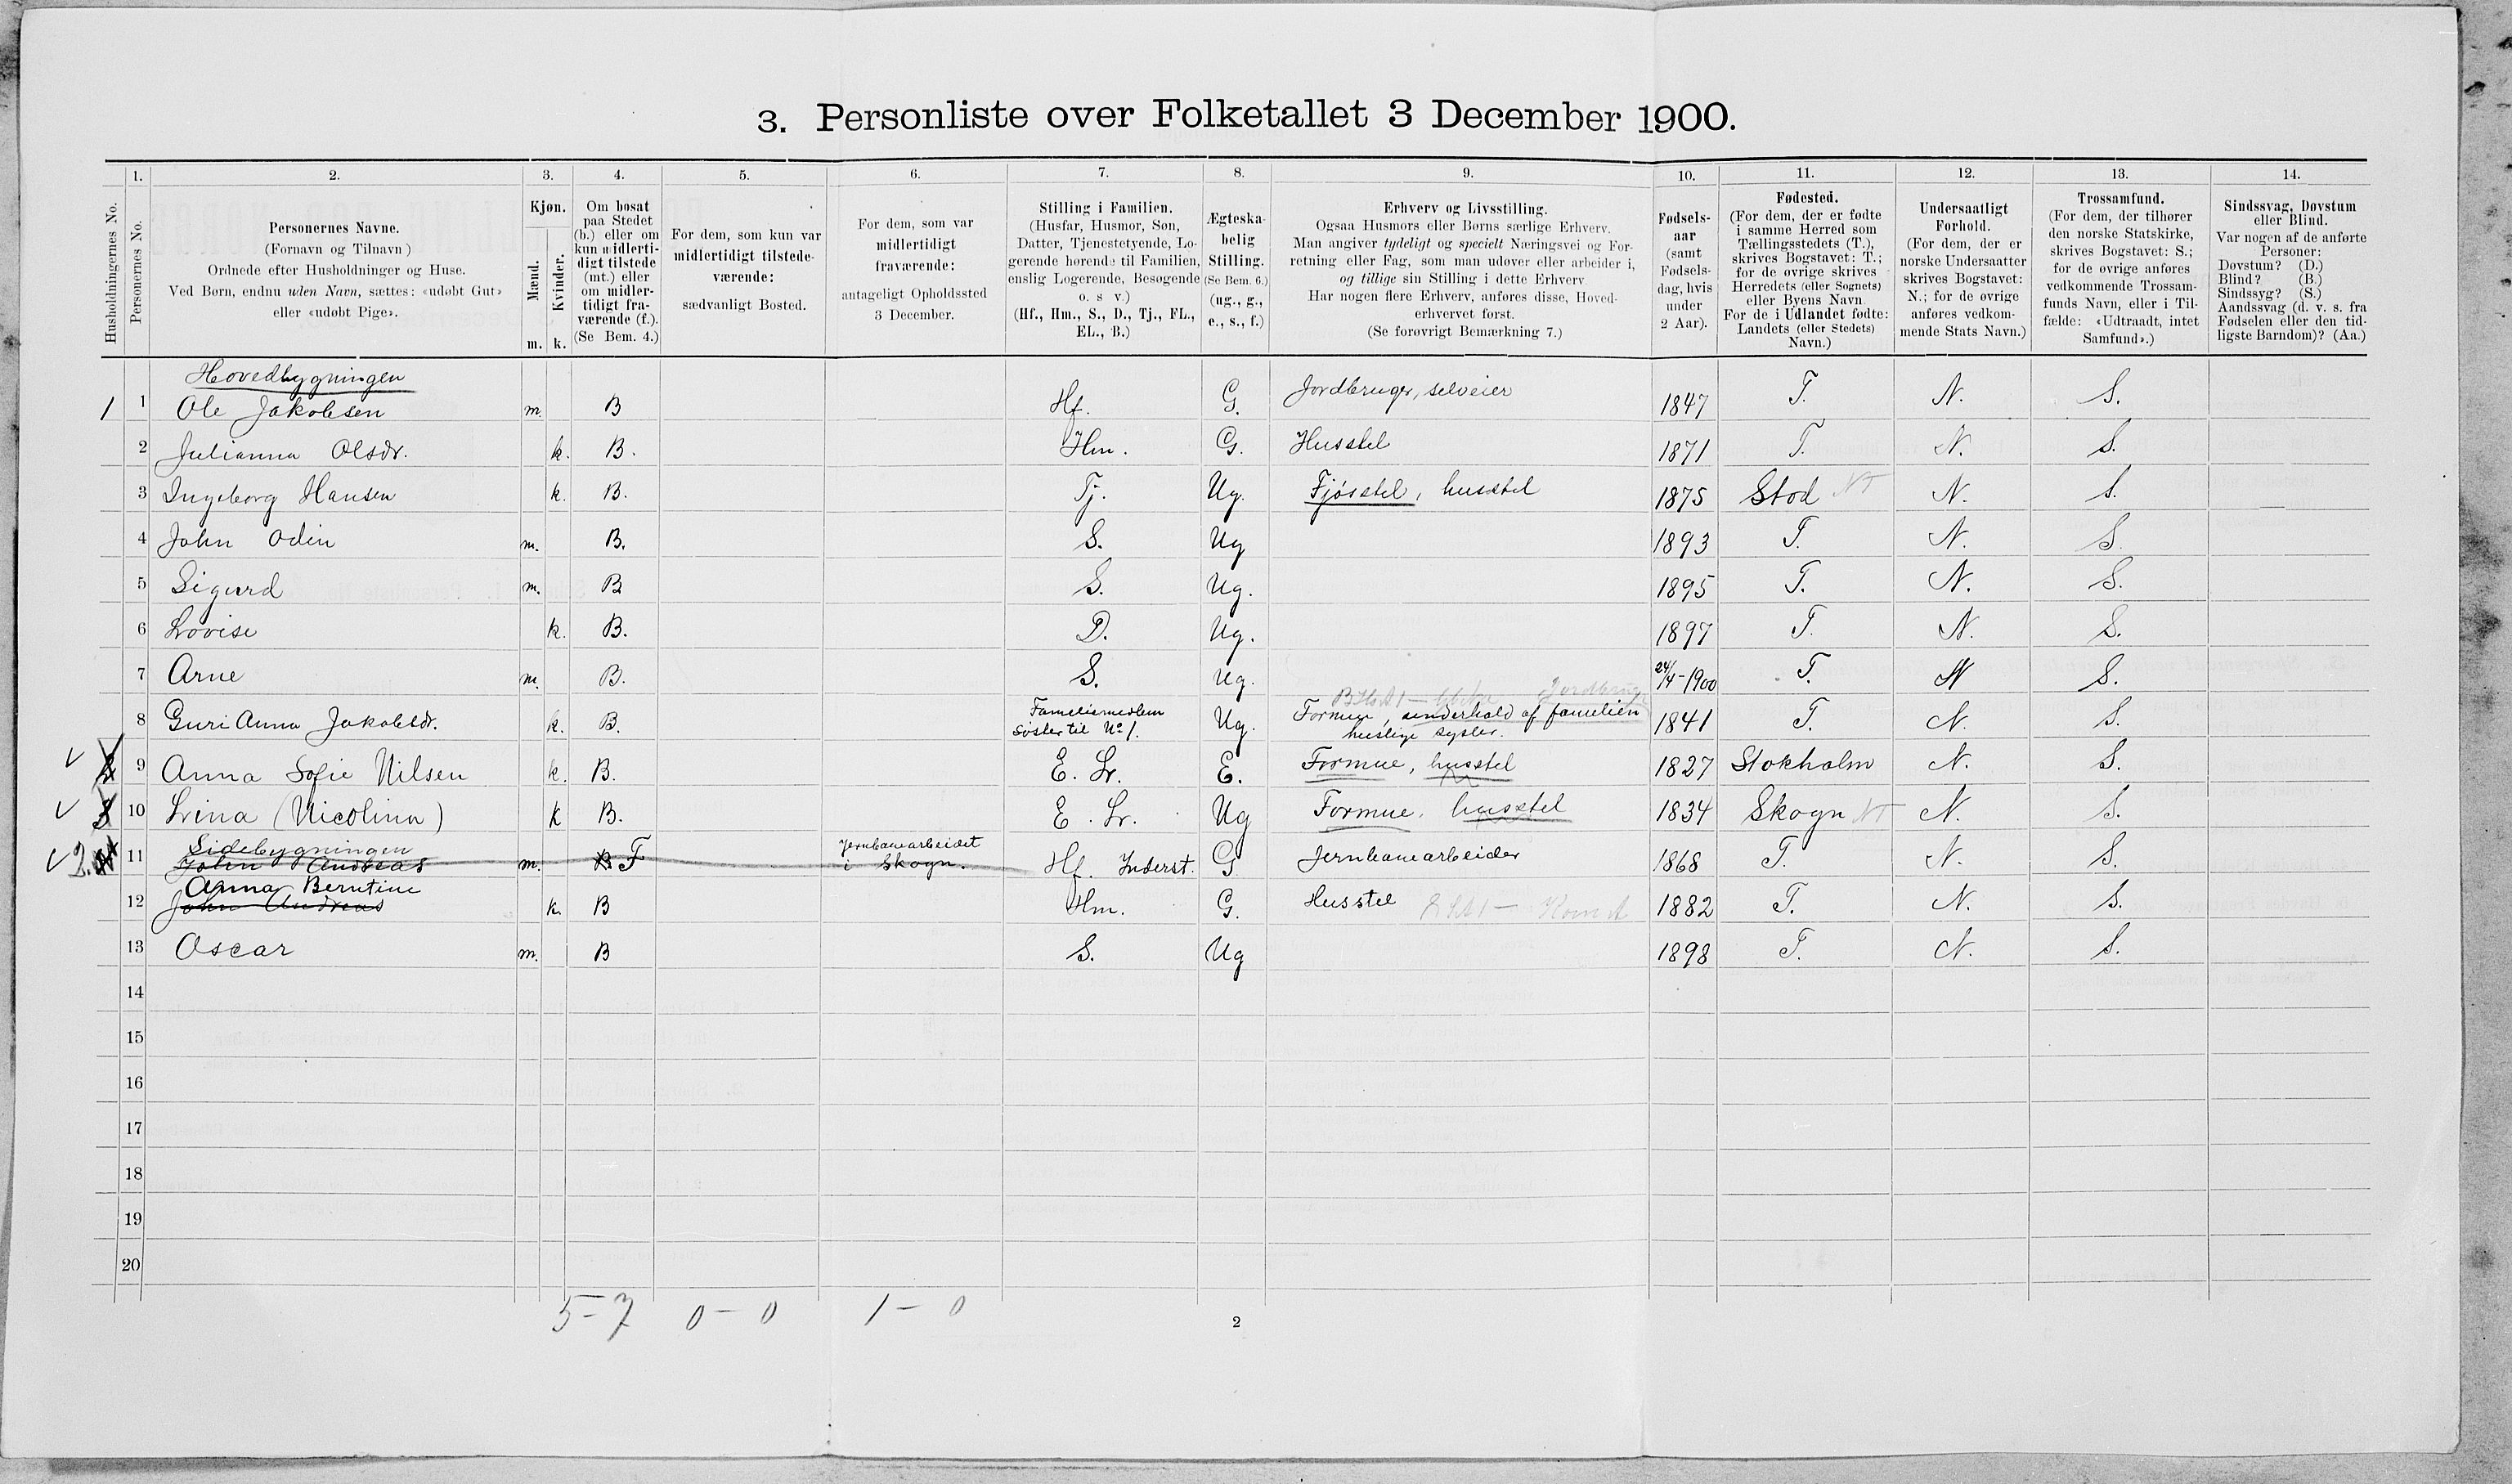 3. Personliste over Folketallet 3 December 1900.
1. 2. 3. 4. 5. 6. 7. 8. 9. 10. 11. 12. 13. 14.
Husholdningernes No.
Personernes No.
Personernes Navne.
(Fornavn og Tilnavn)
Ordnede efter Husholdninger og Huse.
Ved Børn, endnu uden Navn, sættes: «udøbt Gut»
eller «udøbt Pige».
Kjøn.
Mænd.
Kvinder.
m. k.
Om bosat
paa Stedet
(b.) eller om
kun midlerti-
digt tilstede
(mt.) eller
om midler-
tidigt fra-
værende (f.).
(Se Bem. 4.)
For dem, som kun var
midlertidigt tilstede-
værende:
sædvanligt Bosted.
For dem, som var
midlertidigt
fraværende:
antageligt Opholdssted
3 December.
Stilling i Familien.
(Husfar, Husmor, Søn,
Datter, Tjenestetyende, Lo-
gerende hørende til Familien,
enslig Logerende, Besøgende
o. s v.)
(Hf., Hm., S., D., Tj., FL.,
EL., B.)
Ægteska-
belig
Stilling.
(Se Bem. 6.)
(ug., g.,
e., s., f.)
Erhverv og Livsstilling.
Ogsaa Husmors eller Børns særlige Erhverv.
Man angiver tydeligt og specielt Næringsvei og For-
retning eller Fag, som man udøver eller arbeider i,
og tillige sin Stilling i dette Erhverv
Har nogen flere Erhverv, anføres disse, Hoved-
erhvervet først.
(Se forøvrigt Bemærkning 7.)
Fødsels-
aar
(samt
Fødsels-
dag, hvis
under
2 Aar).
Fødested.
(For dem, der er fødte
i samme Herred som
Tællingsstedets (T.),
skrives Bogstavet: T.;
for de øvrige skrives
Herredets (eller Sognets)
eller Byens Navn.
For de i Udlandet fødte:
Landets (eller Stedets)
Navn.)
Undersaatligt
Forhold.
(For dem, der er
norske Undersaatter
skrives Bogstavet:
N.; for de øvrige
anføres vedkom-
mende Stats Navn.)
Trossamfund.
(For dem, der tilhører
den norske Statskirke,
skrives Bogstavet: S.;
for de øvrige anføres
vedkommende Trossam-
funds Navn, eller i Til-
fælde: «Udtraadt, intet
Samfund».)
Sindssvag, Døvstum
eller Blind.
Var nogen af de anførte
Personer:
Døvstum? (D.)
Blind? (B.)
Sindssyg? (S.)
Aandssvag (d. v. s. fra
Fødselen eller den tid-
ligste Barndom)? (Aa.)
Hovedbygningen
1 1 Ole Jakobsen m. B Hf. G. Jordbruger, selveier 1847 T. N. S.
2 Julianna Olsdr. k. B. Hm. G. Husstel 1871 T. N. S.
3 Ingeborg Hansen k. B. Tj. Ug. Fjøsstel, husstel 1875 Stod NT N. S.
4 John Odin m. B. S. Ug 1893 T. N. S.
5 Sigurd m. B S. Ug. 1895 T. N. S.
6 Lovise k. B. D. Ug. 1897 T. N. S.
7 Arne m. B. S. Ug. 24/4-1900 T. N S.
8 Guri Anna Jakobsdr. k. B. Familiemedlem Ug. Formue, underhold af familien 1841 T. N. S.
Søster til No 1. huslige sysler.
9 Anna Sofie Nilsen k. B. E. Lr. E. Formue, husstel 1827 Stokholm N. S.
3 10 Lina (Nicolina) k B. E. Lr. Ug Formue. husstel 1834 Skogn NT N. S.
Sidebygningen Jernbanearbeidet
2. 11 John Andreas m. B F i Skogn. Hf. Inderst. G Jernbanearbeider 1868 T. N. S.
Anna Berntine
12 John Andreas k. B Hm. G. Husstel 1882 T. N. S.
13 Oscar m. B S. Ug 1898 T. N. S.
14
15
16
17
18
19
20
5 - 7 0 - 0 1 - 0
2